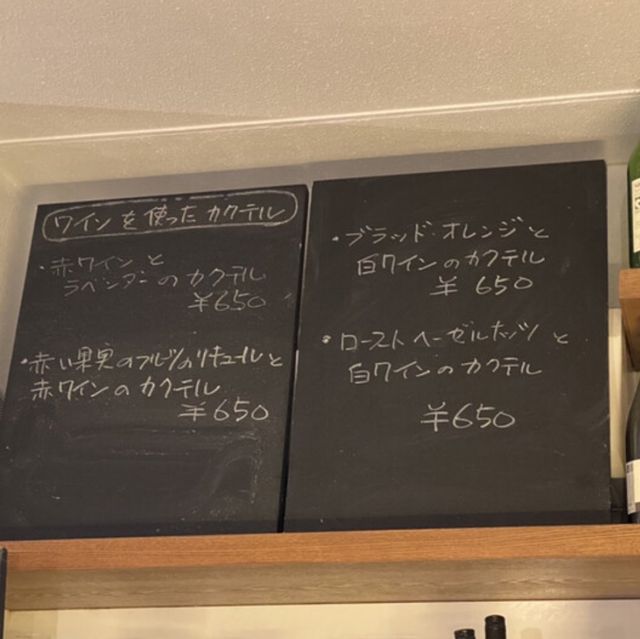 ワインを使ったカクテル
・赤ワインと
ラベンダーのカクテル
¥650
・赤い果実のフルーツのリキュールと
赤ワインのカクテル
¥650
・ブラッドオレンジと
白ワインのカクテル
¥650
・ローストヘーゼルナッツと
白ワインのカクテル
¥650